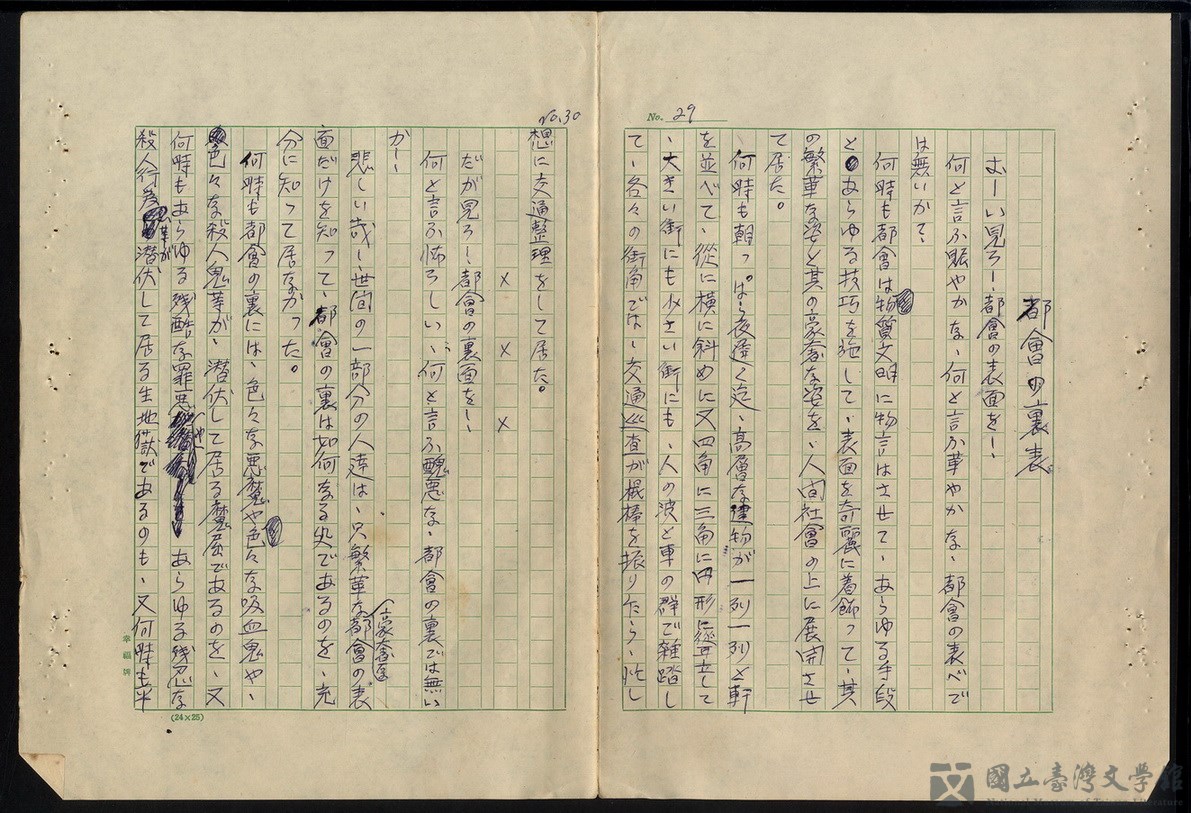 No. 29
都會の裏表
おーい見ろ！都會の表面を！
何と言ふ賑やかな、何と言ふ華やかな、都會の表べで
は無いかて、
何時も都會は物質文明に物言はさせて、あらゆる手段
とあらゆる技巧を施して、表面を奇麗に着飾って、其
の繁華な姿と其の豪奢な姿を、人間社會の上に展開させ
て居た。
何時も朝っぱら夜遅く迄、高層な建物が一列一列と軒
を並べて、從に横に斜めに又四角に三角に円形に聳立して
、大きい街にも少さい街にも、人の波と車の群で雜踏し
て、各々の街角では、交通巡査が棍棒を振り乍ら、忙し
No.30
想に交通整理をして居た。
× × ×
だが見ろ！都會の裏面を！
何と言ふ怖ろしい、何と言ふ醜悪な、都會の裏では無い
か！
悲しい哉！世間の一部分の人達は、只繁華な豪奢な都會の表
面だけを知って、都會の裏は如何なる処であるのを、充
分に知って居なかった。
何時も都會の裏には、色々な悪魔や色々な吸血鬼や、
色々な殺人鬼等が、潜伏して居る魔窟であるのを、又
何時もあらゆる残酷な罪悪や あらゆる残忍な
殺人行為等が潜伏して居る生地獄であるのも、又何時も半
幸福牌
(24×25)
國立臺灣文學館
National Museum of Taiwan Literature